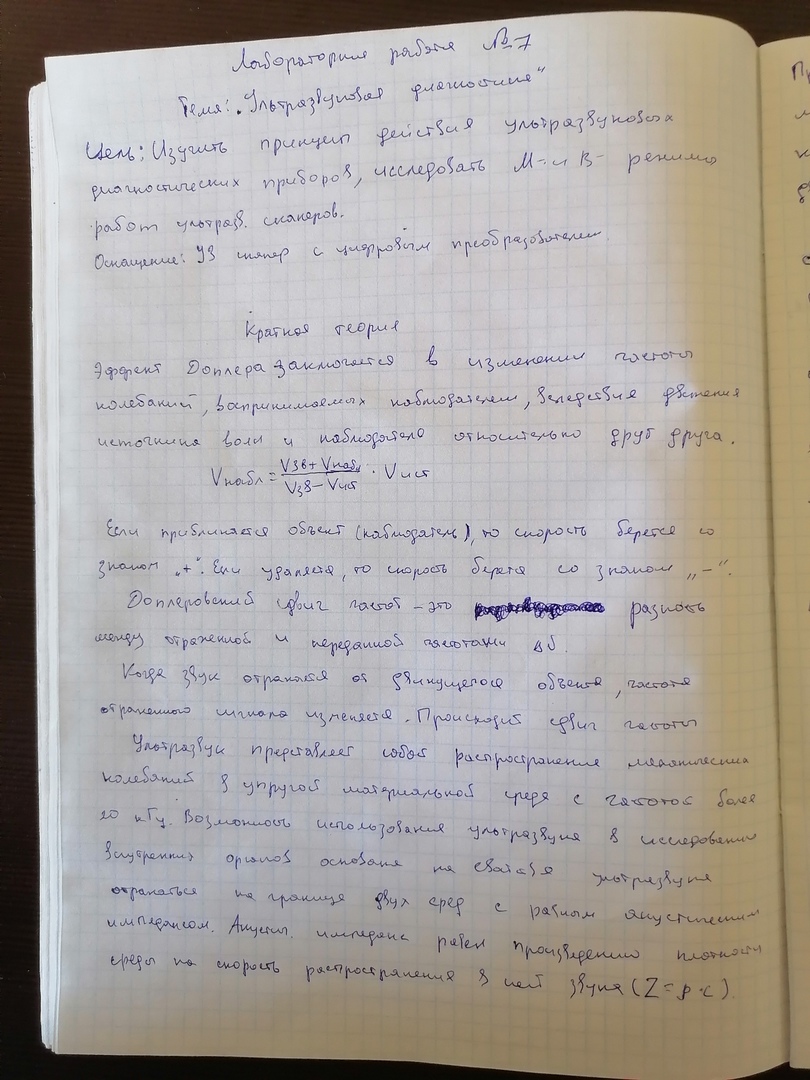 Лабораторная работа №7
Тема: „Ультразвуковая диагностика“
Цель: Изучить принцип действия ультразвуковых
диагностических приборов, исследовать М- и В- режимы
работ ультразв. сканеров.
Оснащение: УЗ сканер с цифровым преобразователем.
Краткая теория
Эффект Доплера заключается в изменении частоты
колебаний, воспринимаемых наблюдателем, вследствие движения
источника волн и наблюдателя относительно друг друга.
Vнабл = (Vзв + Vнабл)/(Vзв - Vист) · Vист
Если приближается объект (наблюдатель), то скорость берется со
знаком „+“. Если удаляется, то скорость берется со знаком „-“.
Доплеровский сдвиг частот - это разность
между отраженной и переданной частотами
Когда звук отражается от движущегося объекта, частота
отраженного сигнала изменяется. Происходит сдвиг частоты
Ультразвук представляет собой распространение механических
колебаний в упругой материальной среде с частотой более
20 кГц. Возможность использования ультразвука в исследовании
внутренних органов основана на свойстве ультразвука
отражаться на границе двух сред с разным акустическим
импедансом. Акустич. импеданс равен произведению плотности
среды на скорость распространения в ней звука (Z = ρ·c).